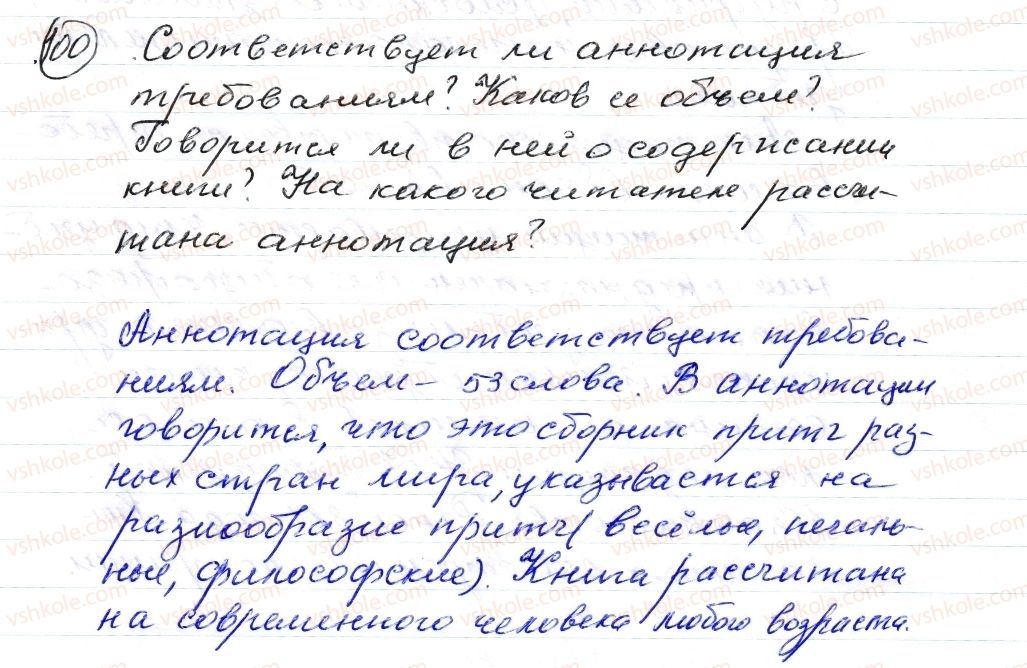 100 Соответствует ли аннотация
требованиям? Каков ее объем?
Говорится ли в ней о содержании
книги? На какого читателя рассчи-
тана аннотация?
Аннотация соответствует требова-
ниям. Объем – 53 слова. В аннотации
говорится, что это сборник притч раз-
ных стран мира, указывается на
разнообразие притч (весёлые, печаль-
ные, философские). Книга рассчитана
на современного человека любого возраста.